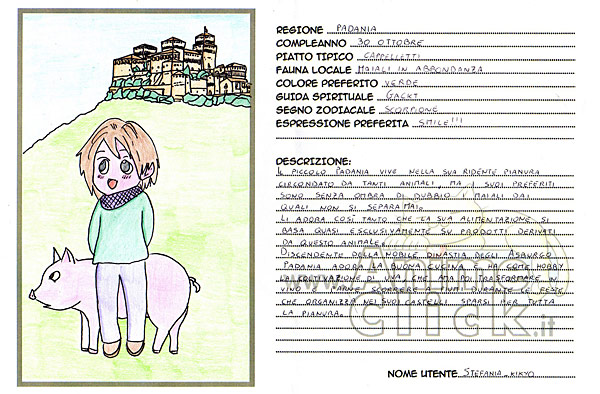 REGIONE PADANIA
COMPLEANNO 30 OTTOBRE
PIATTO TIPICO CAPPELLETTI
FAUNA LOCALE MAIALI IN ABBONDANZA
COLORE PREFERITO VERDE
GUIDA SPIRITUALE GACKT
SEGNO ZODIACALE SCORPIONE
ESPRESSIONE PREFERITA SMILE!!!
DESCRIZIONE:
IL PICCOLO PADANIA VIVE NELLA SUA RIDENTE PIANURA
CIRCONDATO DA TANTI ANIMALI, MA I SUOI PREFERITI
SONO SENZA OMBRA DI DUBBIO I MAIALI DAI
QUALI NON SI SEPARA MAI.
LI ADORA COSÌ TANTO CHE LA SUA ALIMENTAZIONE SI
BASA QUASI ESCLUSIVAMENTE SU PRODOTTI DERIVATI
DA QUESTO ANIMALE.
DISCENDENTE DELLA NOBILE DINASTIA DEGLI ASBURGO
PADANIA ADORA LA BUONA CUCINA E HA COME HOBBY
LA COLTIVAZIONE DI UVA CHE AMA POI TRASFORMARE IN
VINO E FARNE SCORRERE I FIUMI DURANTE LE FESTE
CHE ORGANIZZA NEI SUOI CASTELLI SPARSI PER TUTTA
LA PIANURA.
www.AnimeClick.it
NOME UTENTE STEFANIA_KIKYO